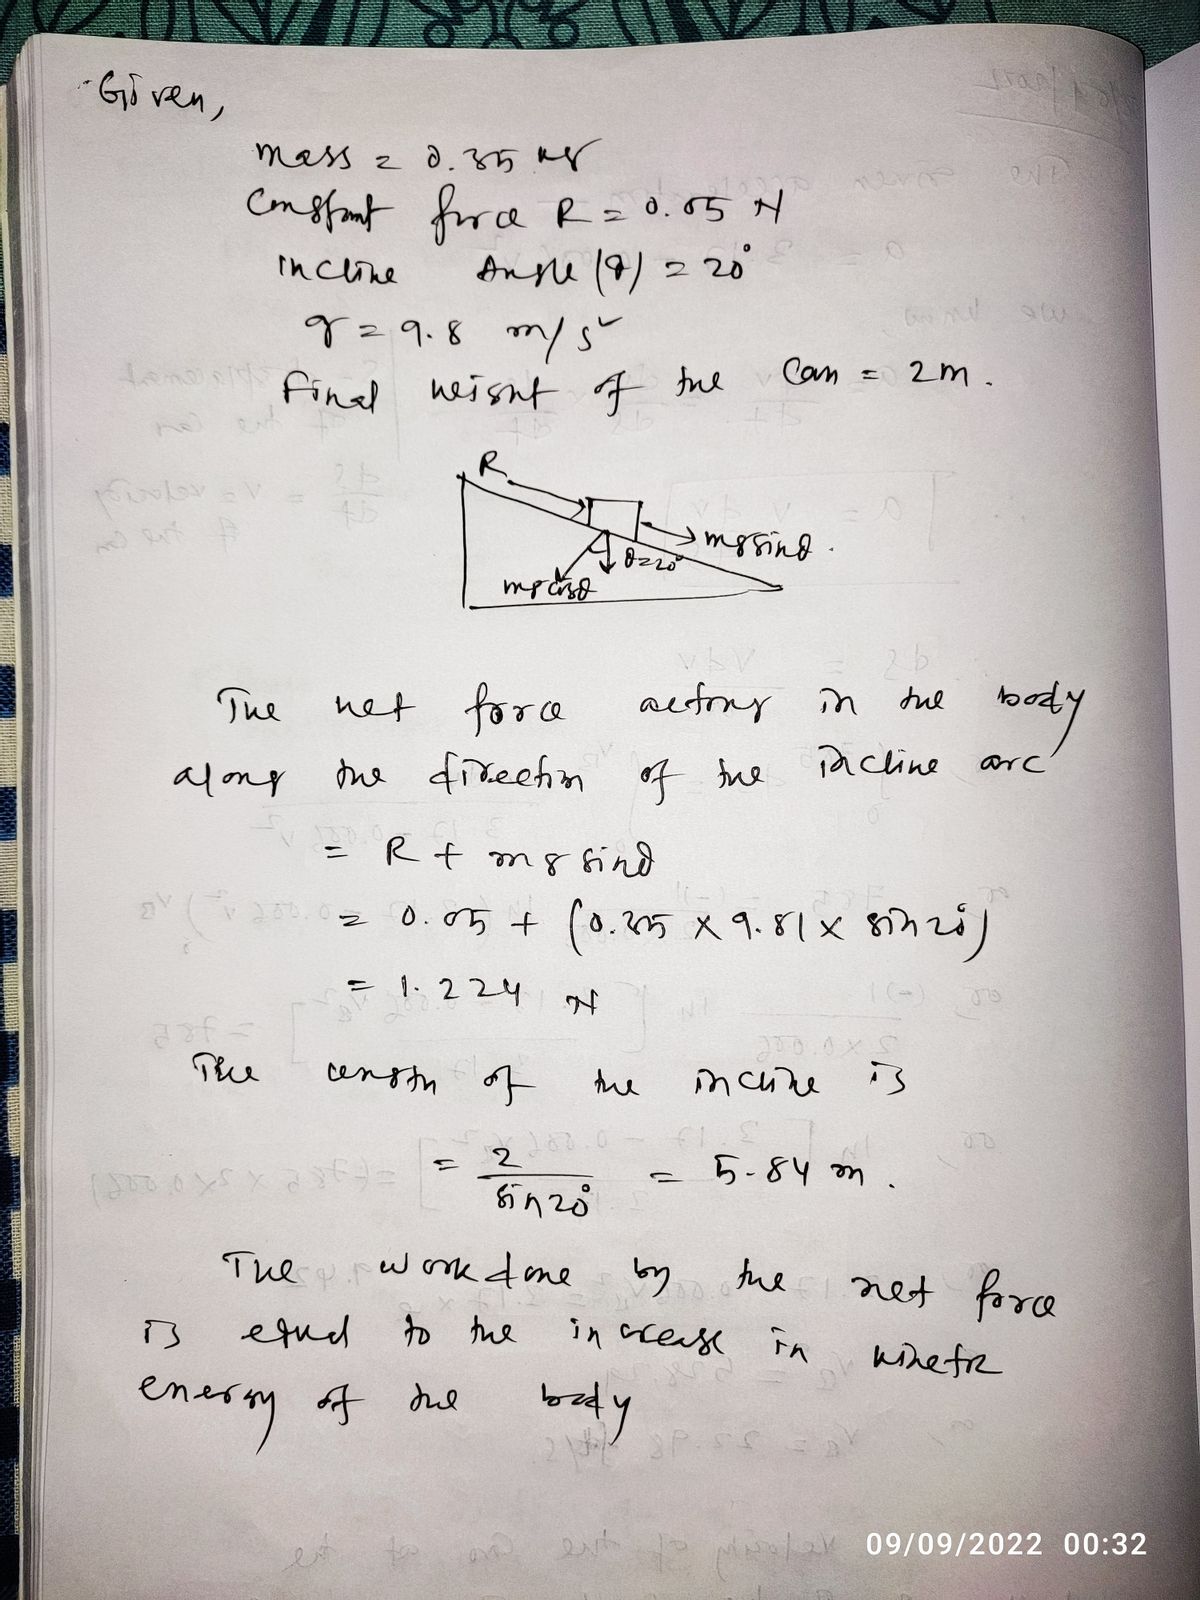 Given,
mass = 0.35 kg
Constant force R = 0.05 N
incline Angle (θ) = 20°
g = 9.8 m/s²
final height of the Can = 2m.
R
mg sinθ.
θ=20°
mg cosθ
The net force acting in the body
along the direction of the incline arc
= R + mg sinθ
= 0.05 + (0.35 × 9.81 × sin 20°)
= 1.224 N
The length of the incline is
= 2 / sin 20° = 5.84 m.
The work done by the net force
is equal to the increase in kinetic
energy of the body
09/09/2022 00:32